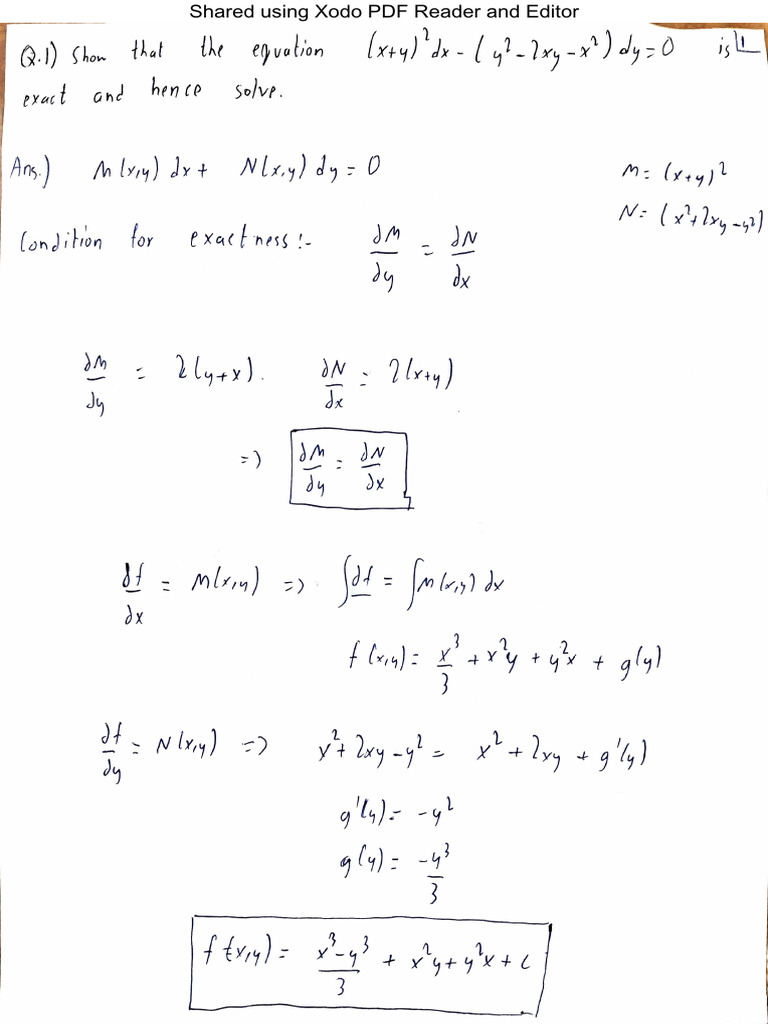 Shared using Xodo PDF Reader and Editor
Q.1) Show that the equation (x+y)²dx - (y²-2xy-x²) dy=0 is 1
exact and hence solve.
Ans.) M(x,y) dx + N(x,y) dy = 0
M= (x+y)²
N= (x²+2xy-y²)
Condition for exactness:- ∂M/∂y = ∂N/∂x
∂M/∂y = 2(y+x). ∂N/∂x = 2(x+y)
=> ∂M/∂y = ∂N/∂x
∂f/∂x = M(x,y) => ∫∂f = ∫M(x,y) dx
f(x,y) = x³/3 + x²y + y²x + g(y)
∂f/∂y = N(x,y) => x²+2xy-y² = x²+2xy + g'(y)
g'(y) = -y²
g(y) = -y³/3
f(x,y) = x³-y³/3 + x²y + y²x + c